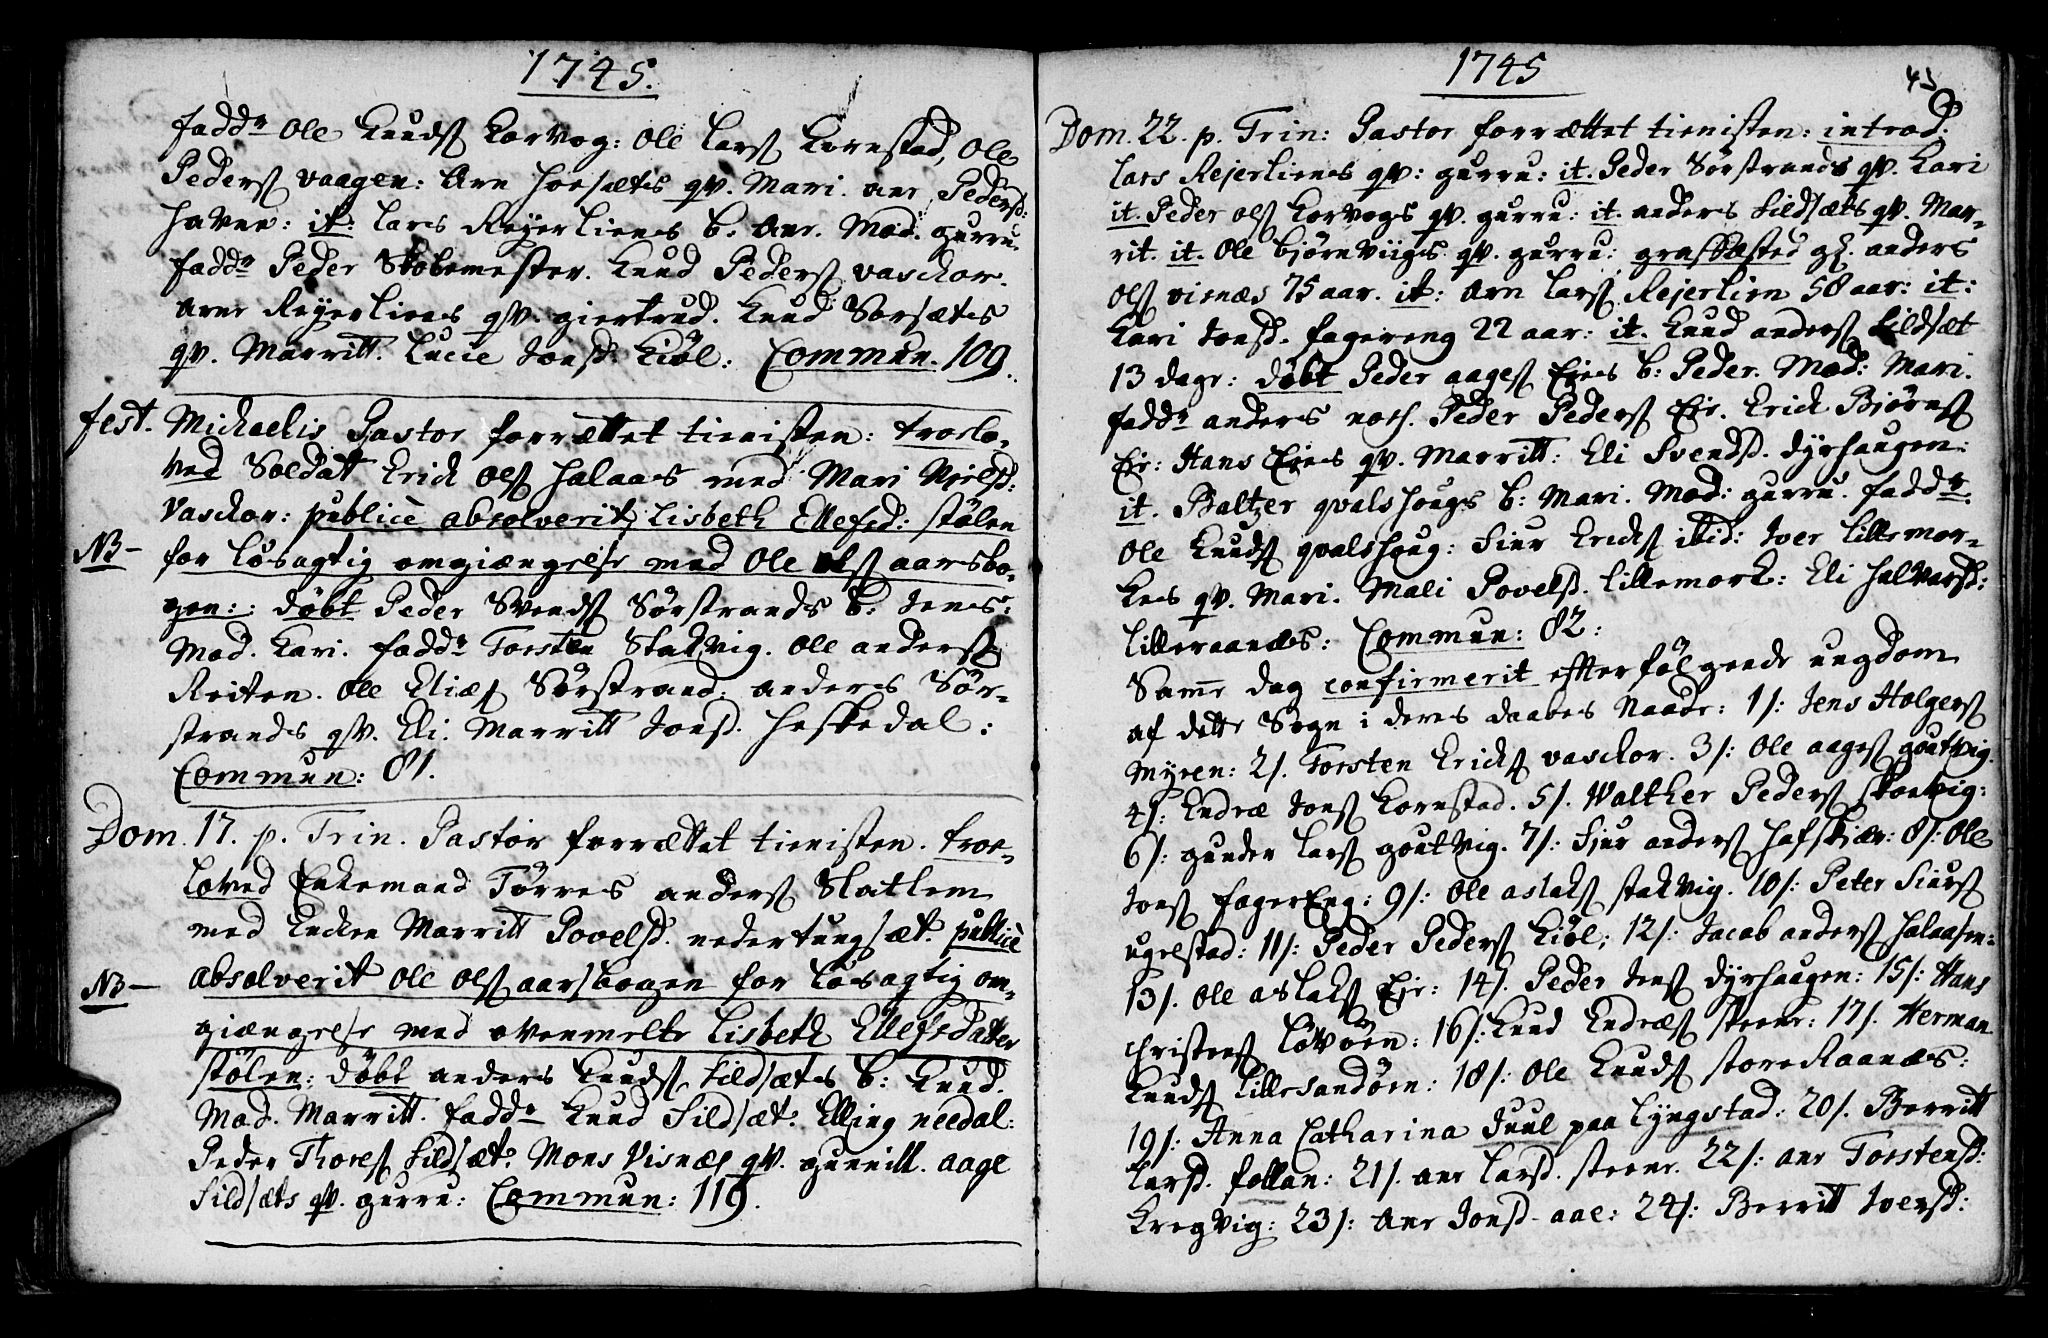 1745.
fadd^r Ole Knuds Korvog: Ole Lars Kornstad, Ole
Peders Vaagen: Ane Horsæts qv. Mari. ane Pedersd:
Haven: it: Lars Rejerliens b. Ane. Mod. gurru.
fadd^r Peder Skolemester. Knud Peders Vaschor.
arne Rejerliens qv. giertrud. Knud Sorsæts
qv. Marritt. Lucie Jonsd. Kiøl: Commun. 109.
fest. Michaelis Pastor forrættet tienisten: troelo-
ved Soldatt Erick Ols Halaas med Mari Nielsd:
Vaschor: publicè absolverit Lisbeth Ellefsd: stølen
NB- for løsagtig omgiængelse med Ole Ols aarsbo-
gen: døbt Peder Svends Sørstrands b: Jens:
Mod. Kari. fadd^r Torsten Stakvig. Ole anders
Reiten. Ole Elias Sørstrand: anders Sør-
strands qv. Eli. Marritt Jonsd. Heskedal:
Commun: 81.
Dom. 17. p. Trin. Pastor forrættet tienisten. troe-
loved Enkemand Törres anders Slatlem
med Encken Marritt Povelsd. nedertungsæt. publicè
NB- absolverit Ole Ols aarsbogen for løsagtig om-
giængelse med ovenmelte Lisbeth Ellefsdatter
stølen: døbt anders Knuds Sildsæts b: Knud.
Mod. Marritt. fadd^r Knud Sildsæt. Elling needal:
Peder Thores Sildsæt. Mons Visnæs qv. gunnill. aage
Sildsæts qv. gurru: Commun: 119.
1745
43
Dom. 22. p. Trin: Pastor forrættet tienisten: introd.
Lars Rejerliens qv: gurru: it. Peder Sørstrands qv. Kari
it. Peder Ols Korvogs qv. gurru: it. anders Sildsæts qv. Mar-
rit. it. Ole Bjørnviigs qv. gurru: grafkæsted gl. anders
Ols visnæs 75 aar. it: Arn Lars Rejerlien 58 aar: it:
Kari Jonsd. fagereng 22 aar: it. Knud anders Sildsæt
13 dage: døbt Peder aages Eies b: Peder. Mod: Mari.
fadd^r anders noes. Peder Peders Eie. Erick Bjørns
Eie: Hans Eies qv. Marritt: Eli Svendsd. Dyrhaugen:
it. Baltzer qvalshougs b: Mari. Mod: gurru. fadd^r.
Ole Knuds qvalshoug: Siur Ericks ibid: Iver Lillemor-
kes qv. Mari. Mali Povelsd. Lillemork: Eli Halvarsd:
Lilleraanæs: Commun: 82:
Samme dag confirmerit efterfølgende ungdom
af dette Sogn i deres daabes Naade: 1/: Jens Holgers
Myren: 2/. Torsten Ericks vaschor. 3/: Ole aages goutvig.
4/: Endræ Jons Kornstad. 5/. Walther Peders skoelvig:
6/: gunder Lars goutvig. 7/: Siur anders Hafskjær: 8/: Ole
Jons fagerEng: 9/: Ole aslaks stakvig. 10/: Peter Siurs
ugelstad: 11/: Peder Peders Kiøl; 12/: Jacob anders Halaasen:
13/. Ole aslaks Eje: 14/. Peder Jens Dyrhaugen: 15/: Hans
christens Løvöen: 16/. Knud Endræs steene: 17/. Herman
Knuds Lillesandöen: 18/: Ole Knuds storeRaanæs:
19/: Anna Catharina Juul paa Lyngstad: 20/. Berritt
Larsd. follan: 21/. ane Larsd. steene. 22/: ane Torstensd:
Kregvig: 23/: Ane Jonsd. aae: 24/: Berritt Iversd: